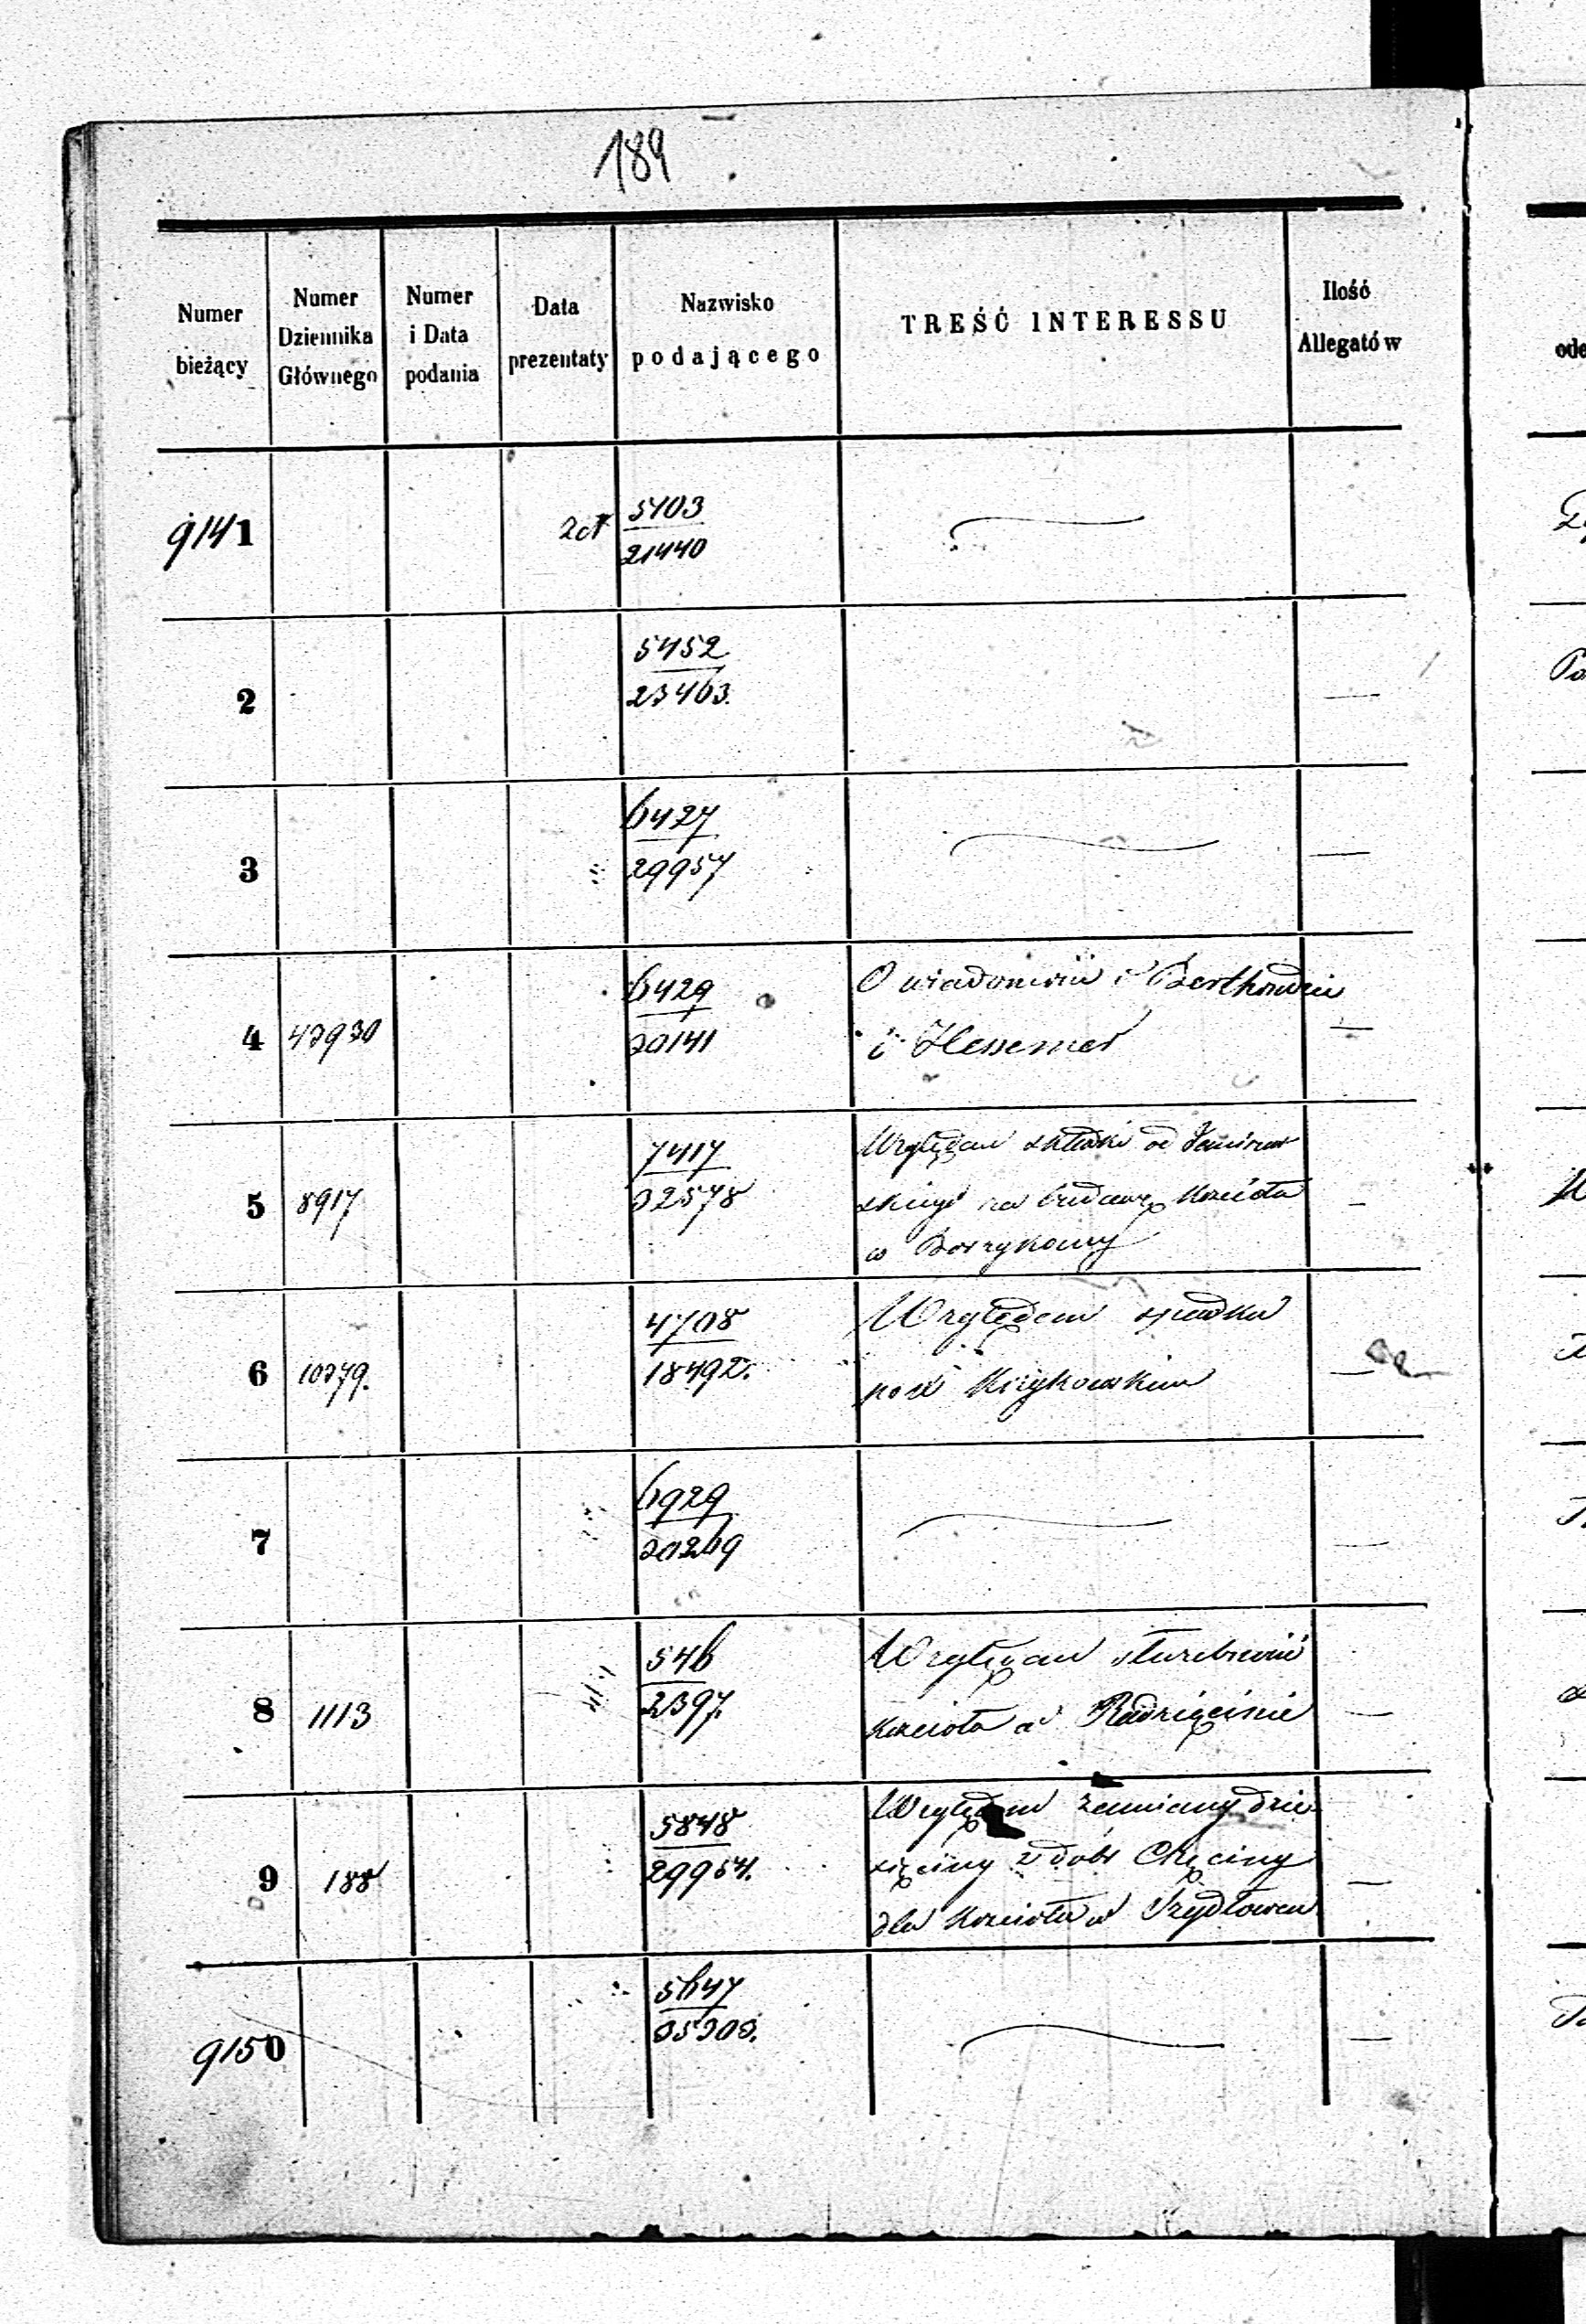 189
Numer bieżący
Numer Dziennika Głównego
Numer i Data podania
Data prezentaty
Nazwisko podającego
TREŚĆ INTERESSU
Ilość Allegatów
9141
5103
21440
2
5452
23463.
3
6427
29957
4
43930
6429
30141
O wiadomości
i Hessemer
5
8917
7417
32578
Względem składki od
skiego na budowę Kościoła
w Borzykowy
6
10379.
4708
18492.
Względem spadku
po Krzykowskim
7
6929
30269
8
1113
546
2397.
Względem
Kościoła w Radzięcinie
9
188
5848
29954.
Względem zamiany dzie
sięciny z dóbr Chęciny
dla Kościoła w Szydłowcu
9150
5647
35303.